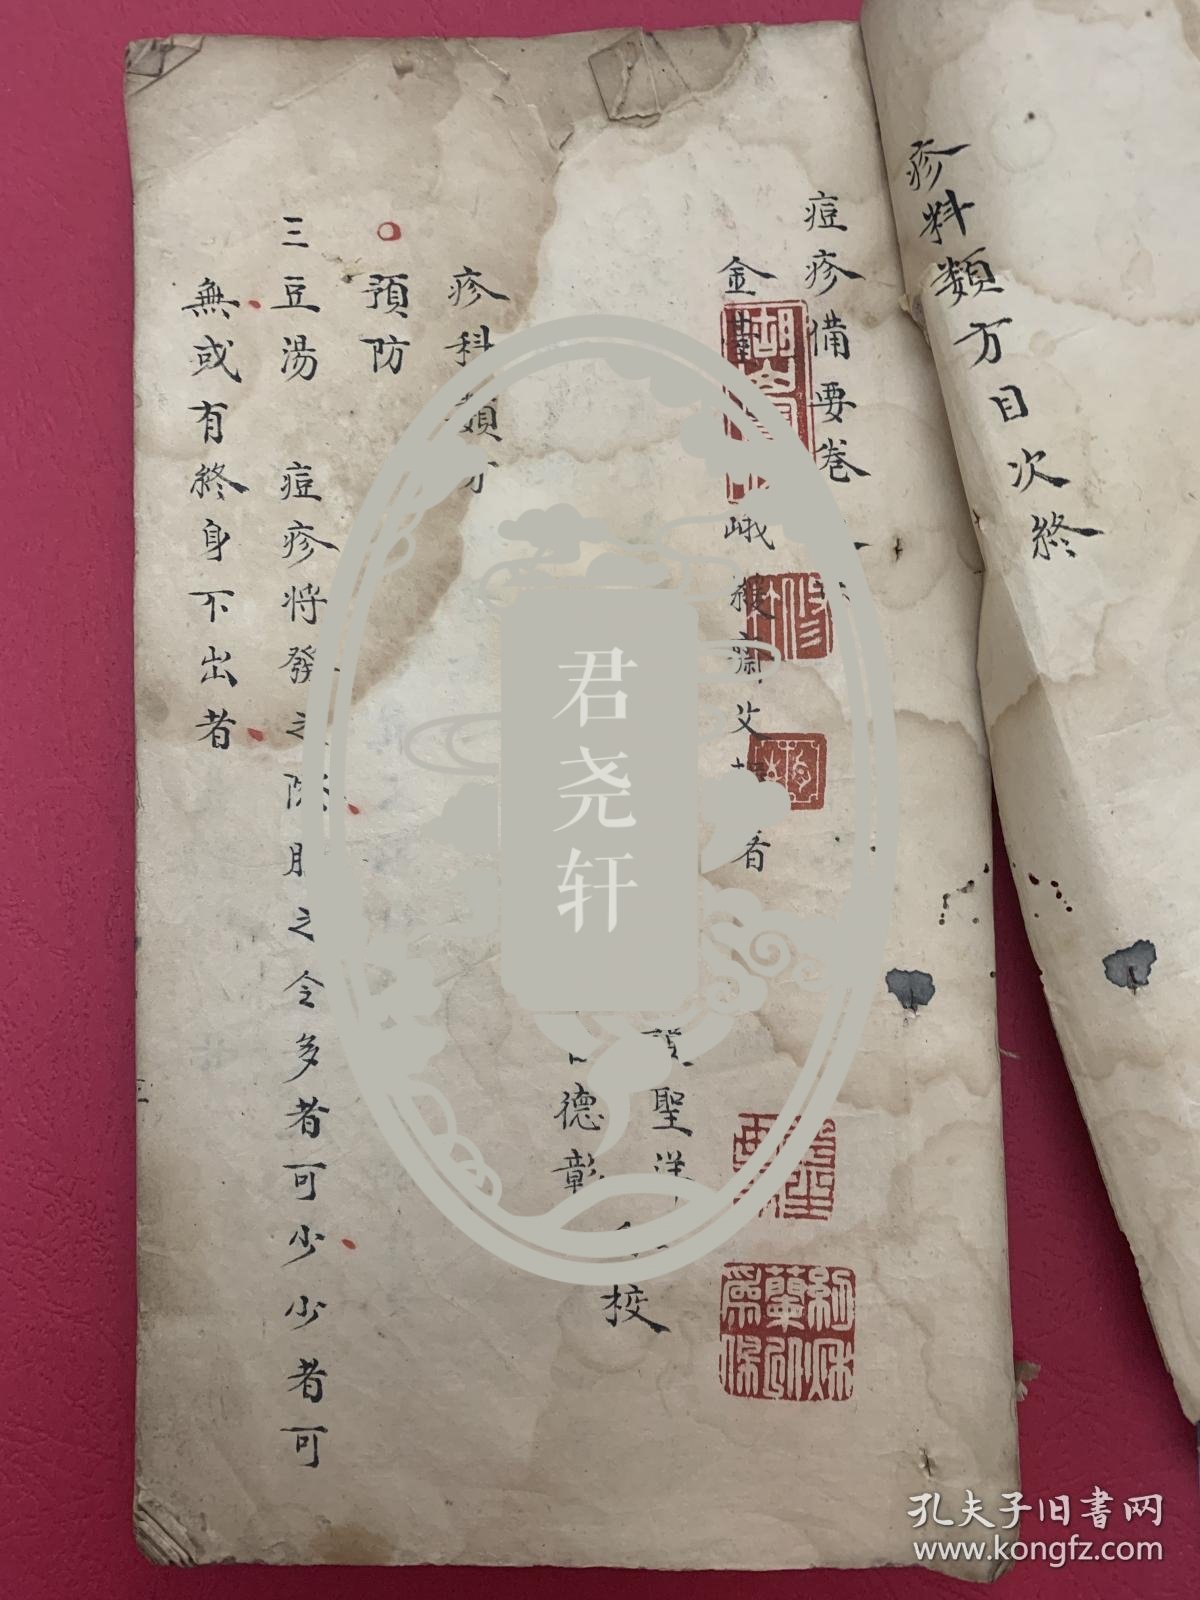 疹科類方目次終
痘疹備要卷
金 峨 齋父 着
聖洋
德彰
校
疹科類方
預防
三豆湯 痘疹将發之際服之令多者可少少者可
無或有終身不出者
紉秋蘭以為佩
君尧轩
孔夫子旧書网
www.kongfz.com